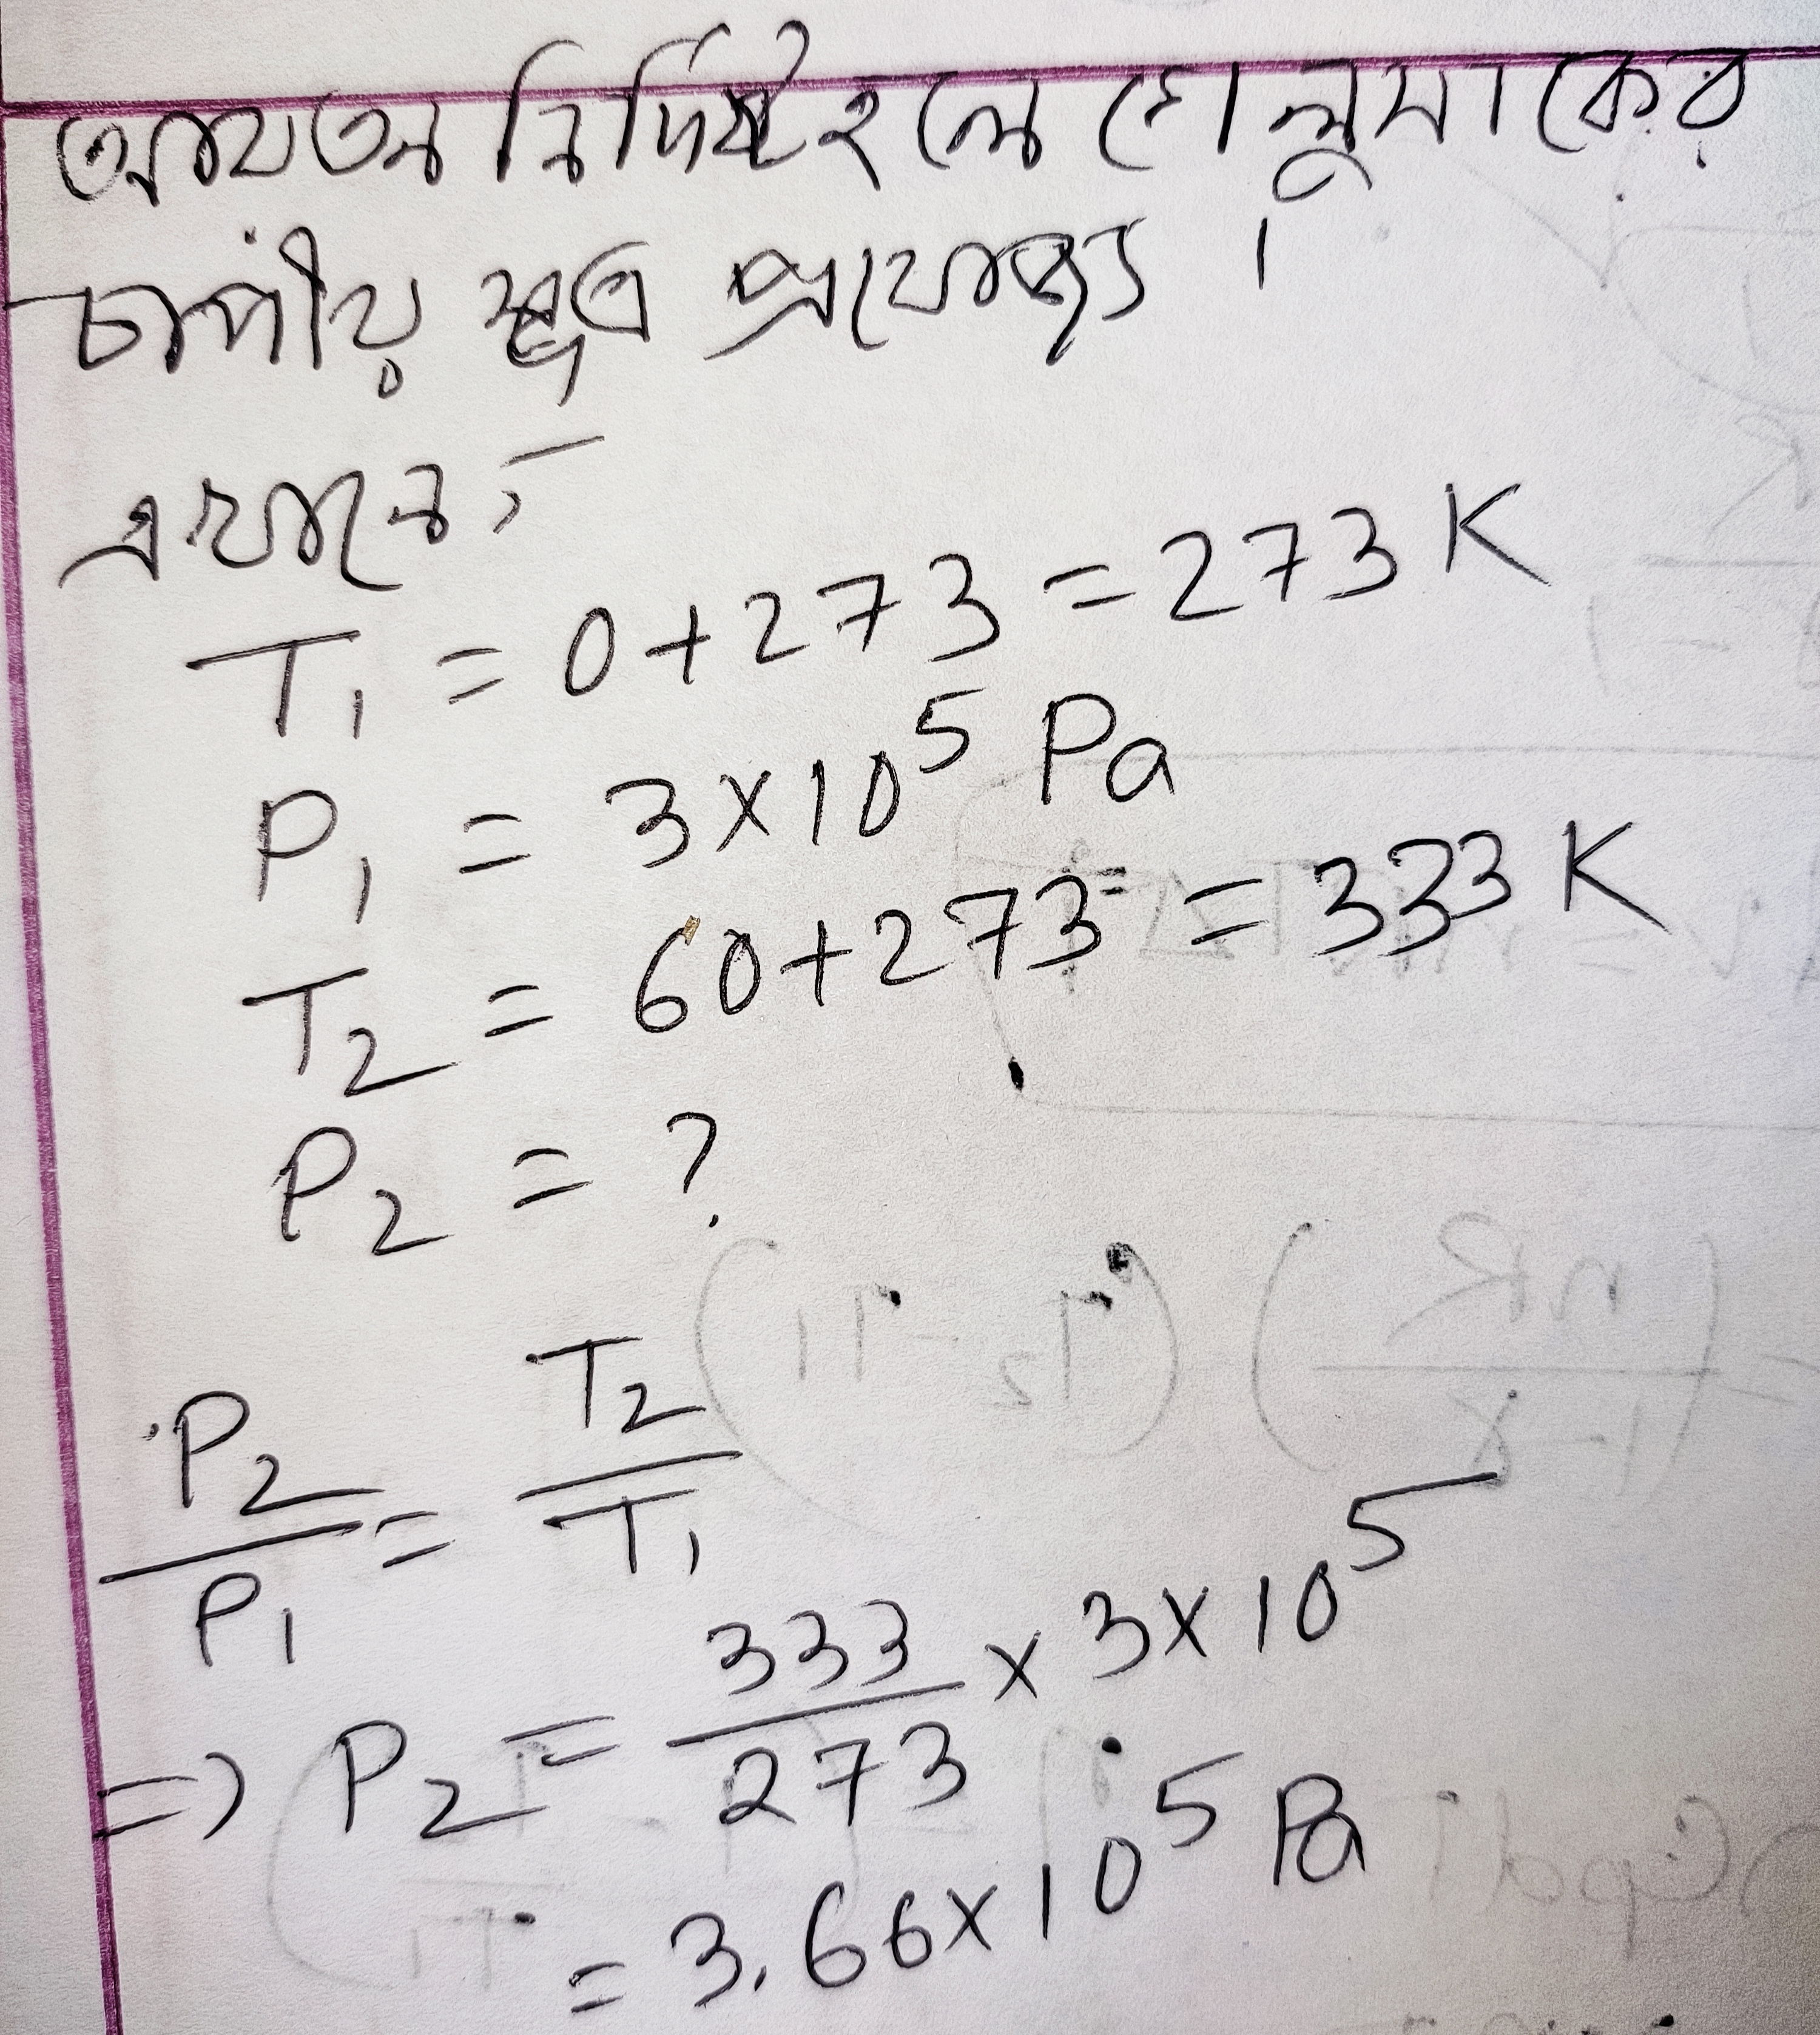 আয়তন নির্দিষ্ট হলে গেলুসাকের
চাপীয় সূত্র প্রযোজ্য ।
এখানে,
T₁ = 0+273 = 273 K
P₁ = 3×10⁵ Pa
T₂ = 60+273 = 333 K
P₂ = ?
P₂/P₁ = T₂/T₁
⇒ P₂ = 333/273 × 3×10⁵
= 3.66×10⁵ Pa